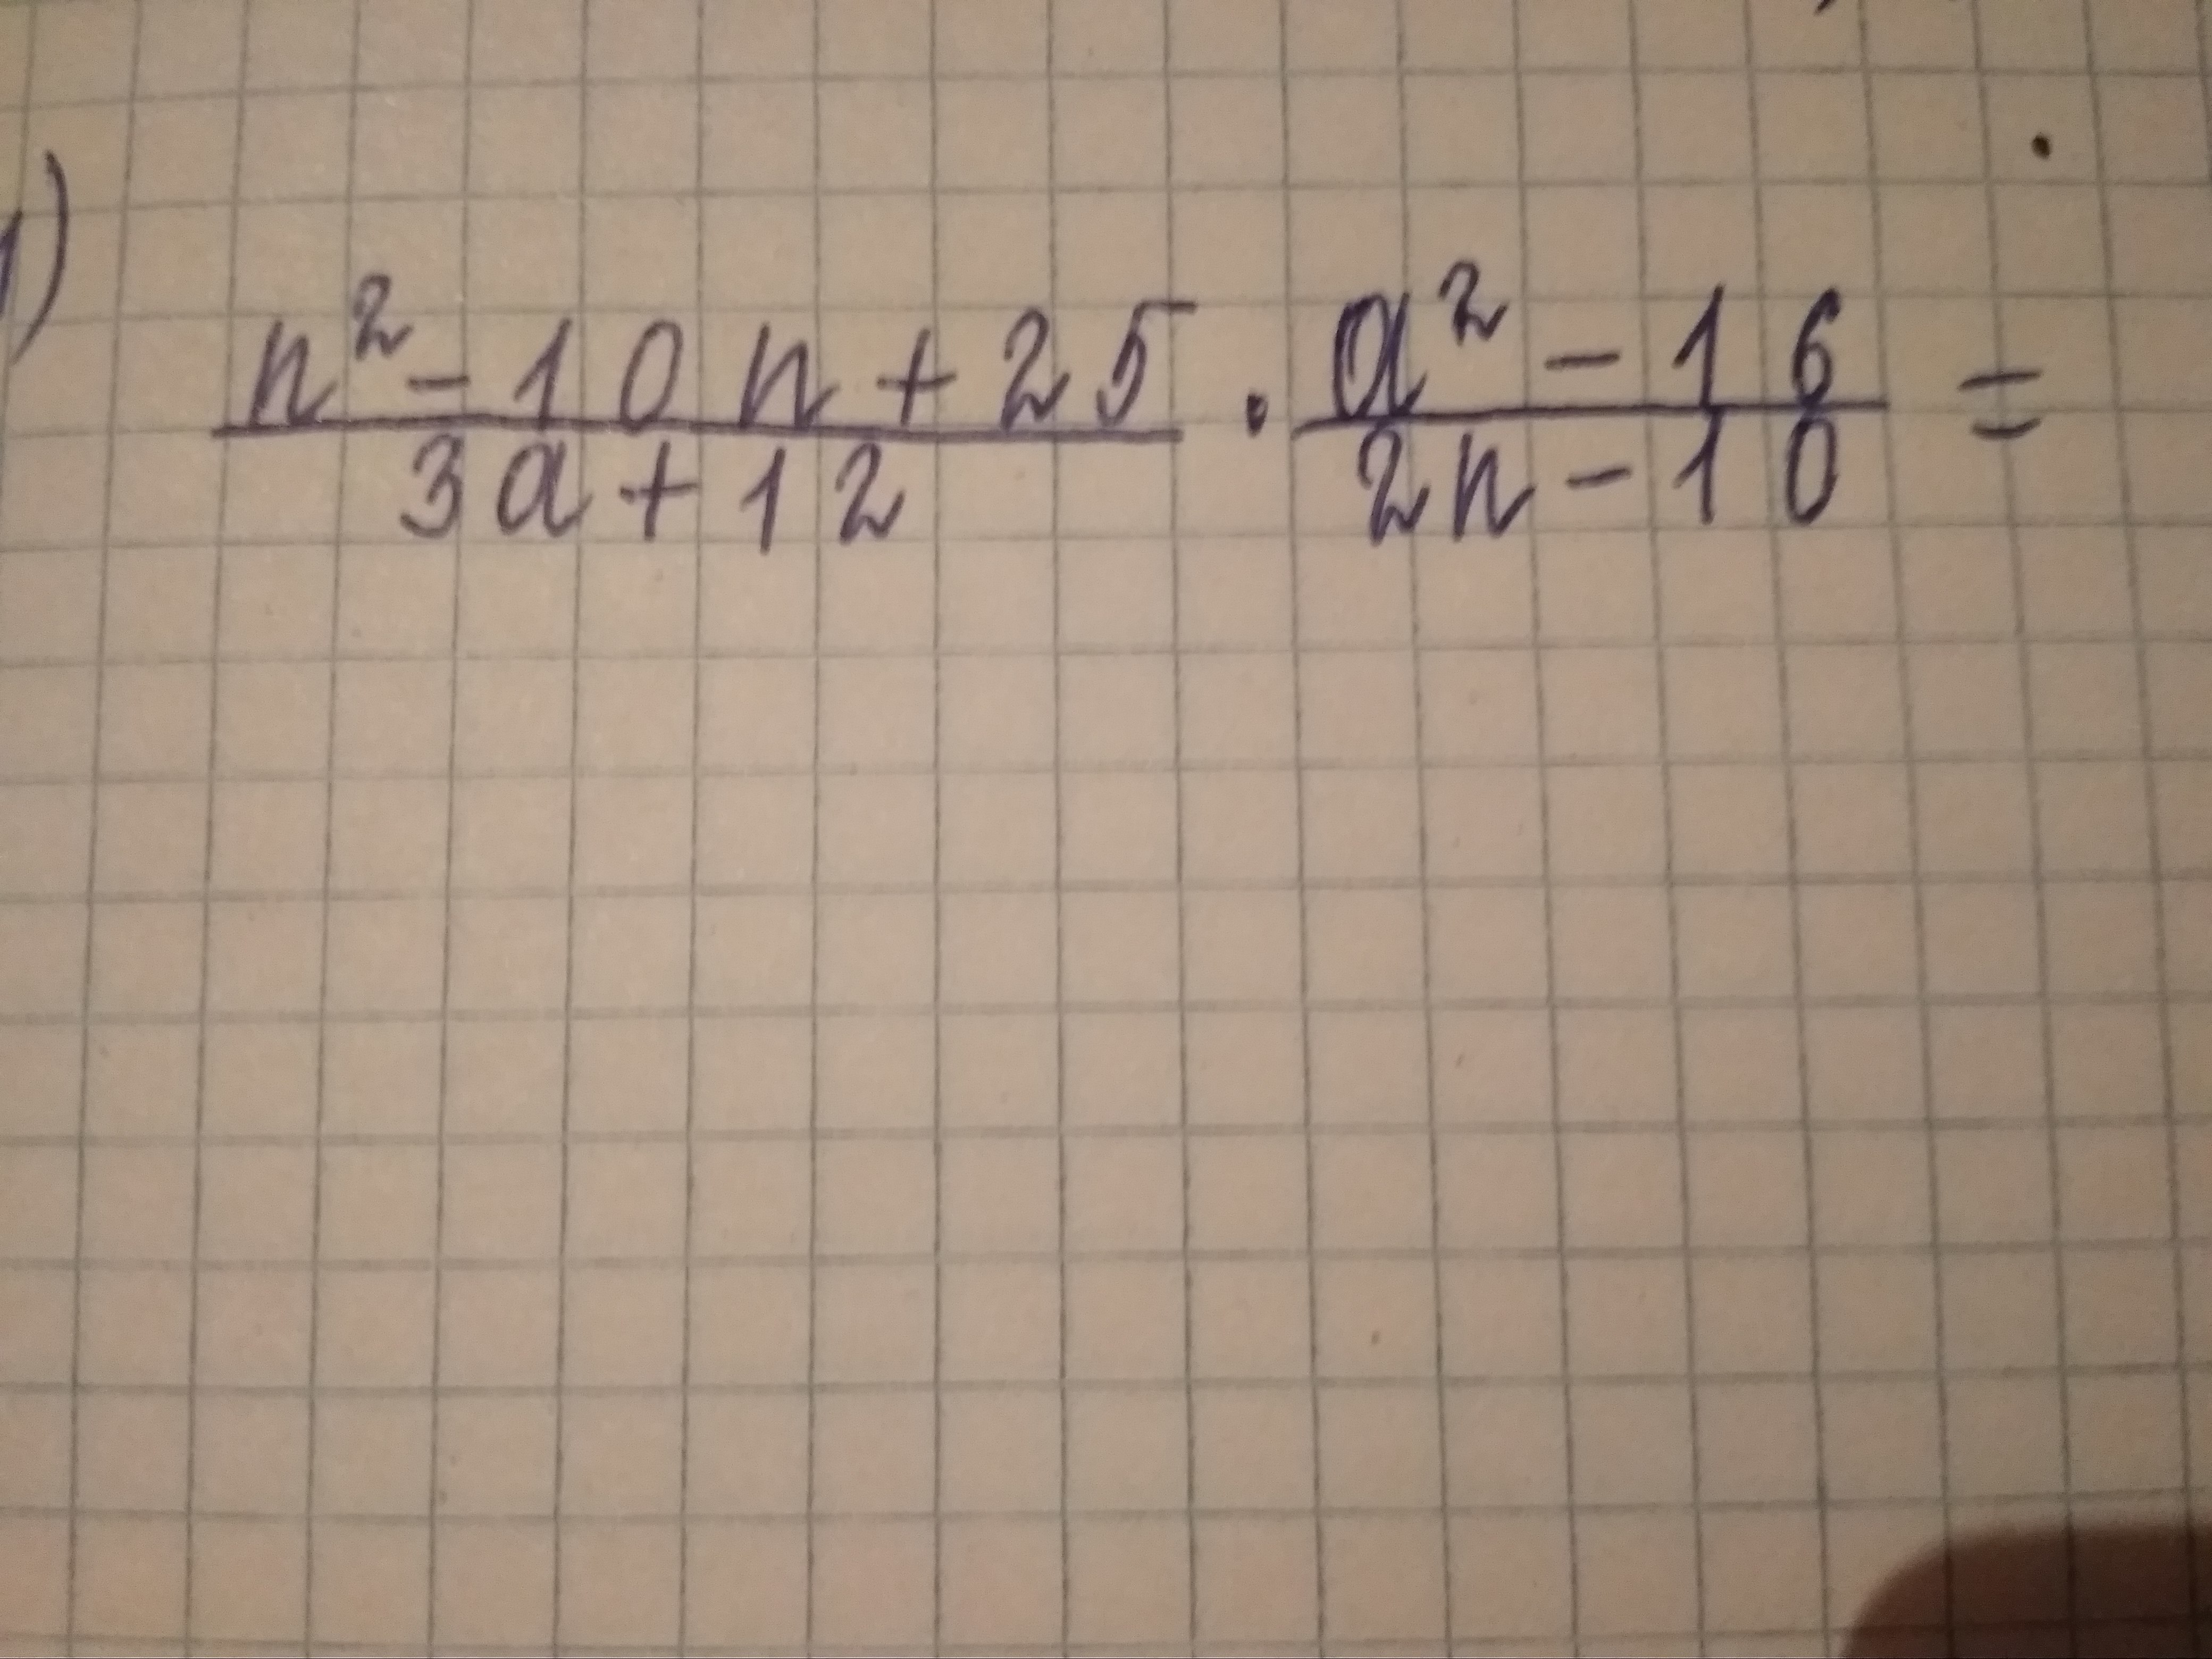 1)
n² - 10n + 25 / 3a + 12 · a² - 16 / 2n - 10 =